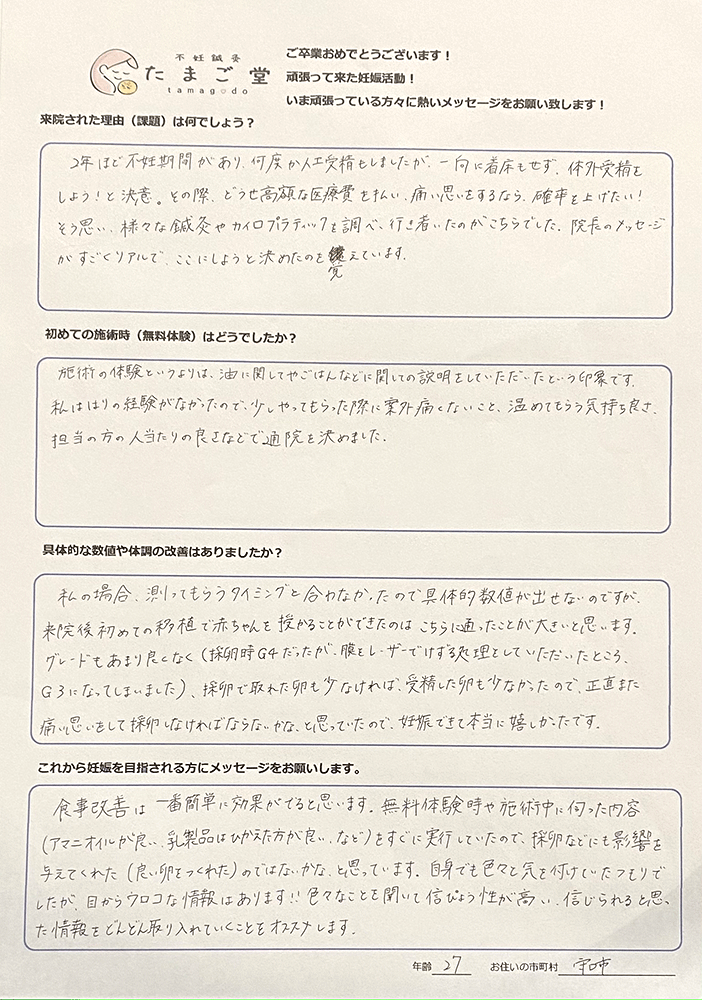 不妊鍼灸
たまご堂
tamagodo
ご卒業おめでとうございます！
頑張って来た妊娠活動！
いま頑張っている方々に熱いメッセージをお願い致します！
来院された理由（課題）は何でしょう？
2年ほど不妊期間があり、何度か人工受精もしましたが、一向に着床もせず、体外受精を
しよう！と決意。その際、どうせ高額な医療費を払い、痛い思いをするなら、確率を上げたい！
そう思い、様々な鍼灸やカイロプラティックを調べ、行き着いたのがこちらでした。院長のメッセージ
がすごくリアルで、ここにしようと決めたのを覚えています。
初めての施術時（無料体験）はどうでしたか？
施術の体験というよりは、油に関してやごはんなどに関しての説明をしていただいたという印象です。
私ははりの経験がなかったので、少しやってもらった際に案外痛くないこと、温めてもらう気持ち良さ、
担当の方の人当たりの良さなどで通院を決めました。
具体的な数値や体調の改善はありましたか？
私の場合、測ってもらうタイミングと合わなかったので具体的数値が出せないのですが、
来院後初めての移植で赤ちゃんを授かることができたのはこちらに通ったことが大きいと思います。
グレードもあまり良くなく（採卵時G4だったが、膜をレーザーでけずる処理をしていただいたところ、
G3になってしまいました）、採卵で取れた卵も少なければ、受精した卵も少なかったので、正直また
痛い思いをして採卵しなければならないかな、と思っていたので、妊娠できて本当に嬉しかったです。
これから妊娠を目指される方にメッセージをお願いします。
食事改善は一番簡単に効果がでると思います。無料体験時や施術中に伺った内容
（アマニオイルが良い、乳製品はひかえた方が良い、など）をすぐに実行していたので、採卵などにも影響を
与えてくれた（良い卵をつくれた）のではないかな、と思っています。自身でも色々と気を付けていたつもりで
したが、目からウロコな情報はあります!! 色々なことを聞いて信ぴょう性が高い、信じられると思っ
た情報をどんどん取り入れていくことをオススメします。
年齢 27 お住いの市町村